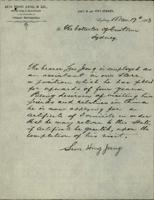 Sydney, Nov 17th 1903
the Collector of Customs
Sydney
The bearer Lew Jong is employed as
an assistant in our store
a position which he has filled
for upwards of four years.
Being desirous of visiting his
friends and relatives in China
he is now applying for a
certificate of Domicile in order
that he may return to this State
if certificate be granted, upon the
completion of his visit.
Sun Hing Jang